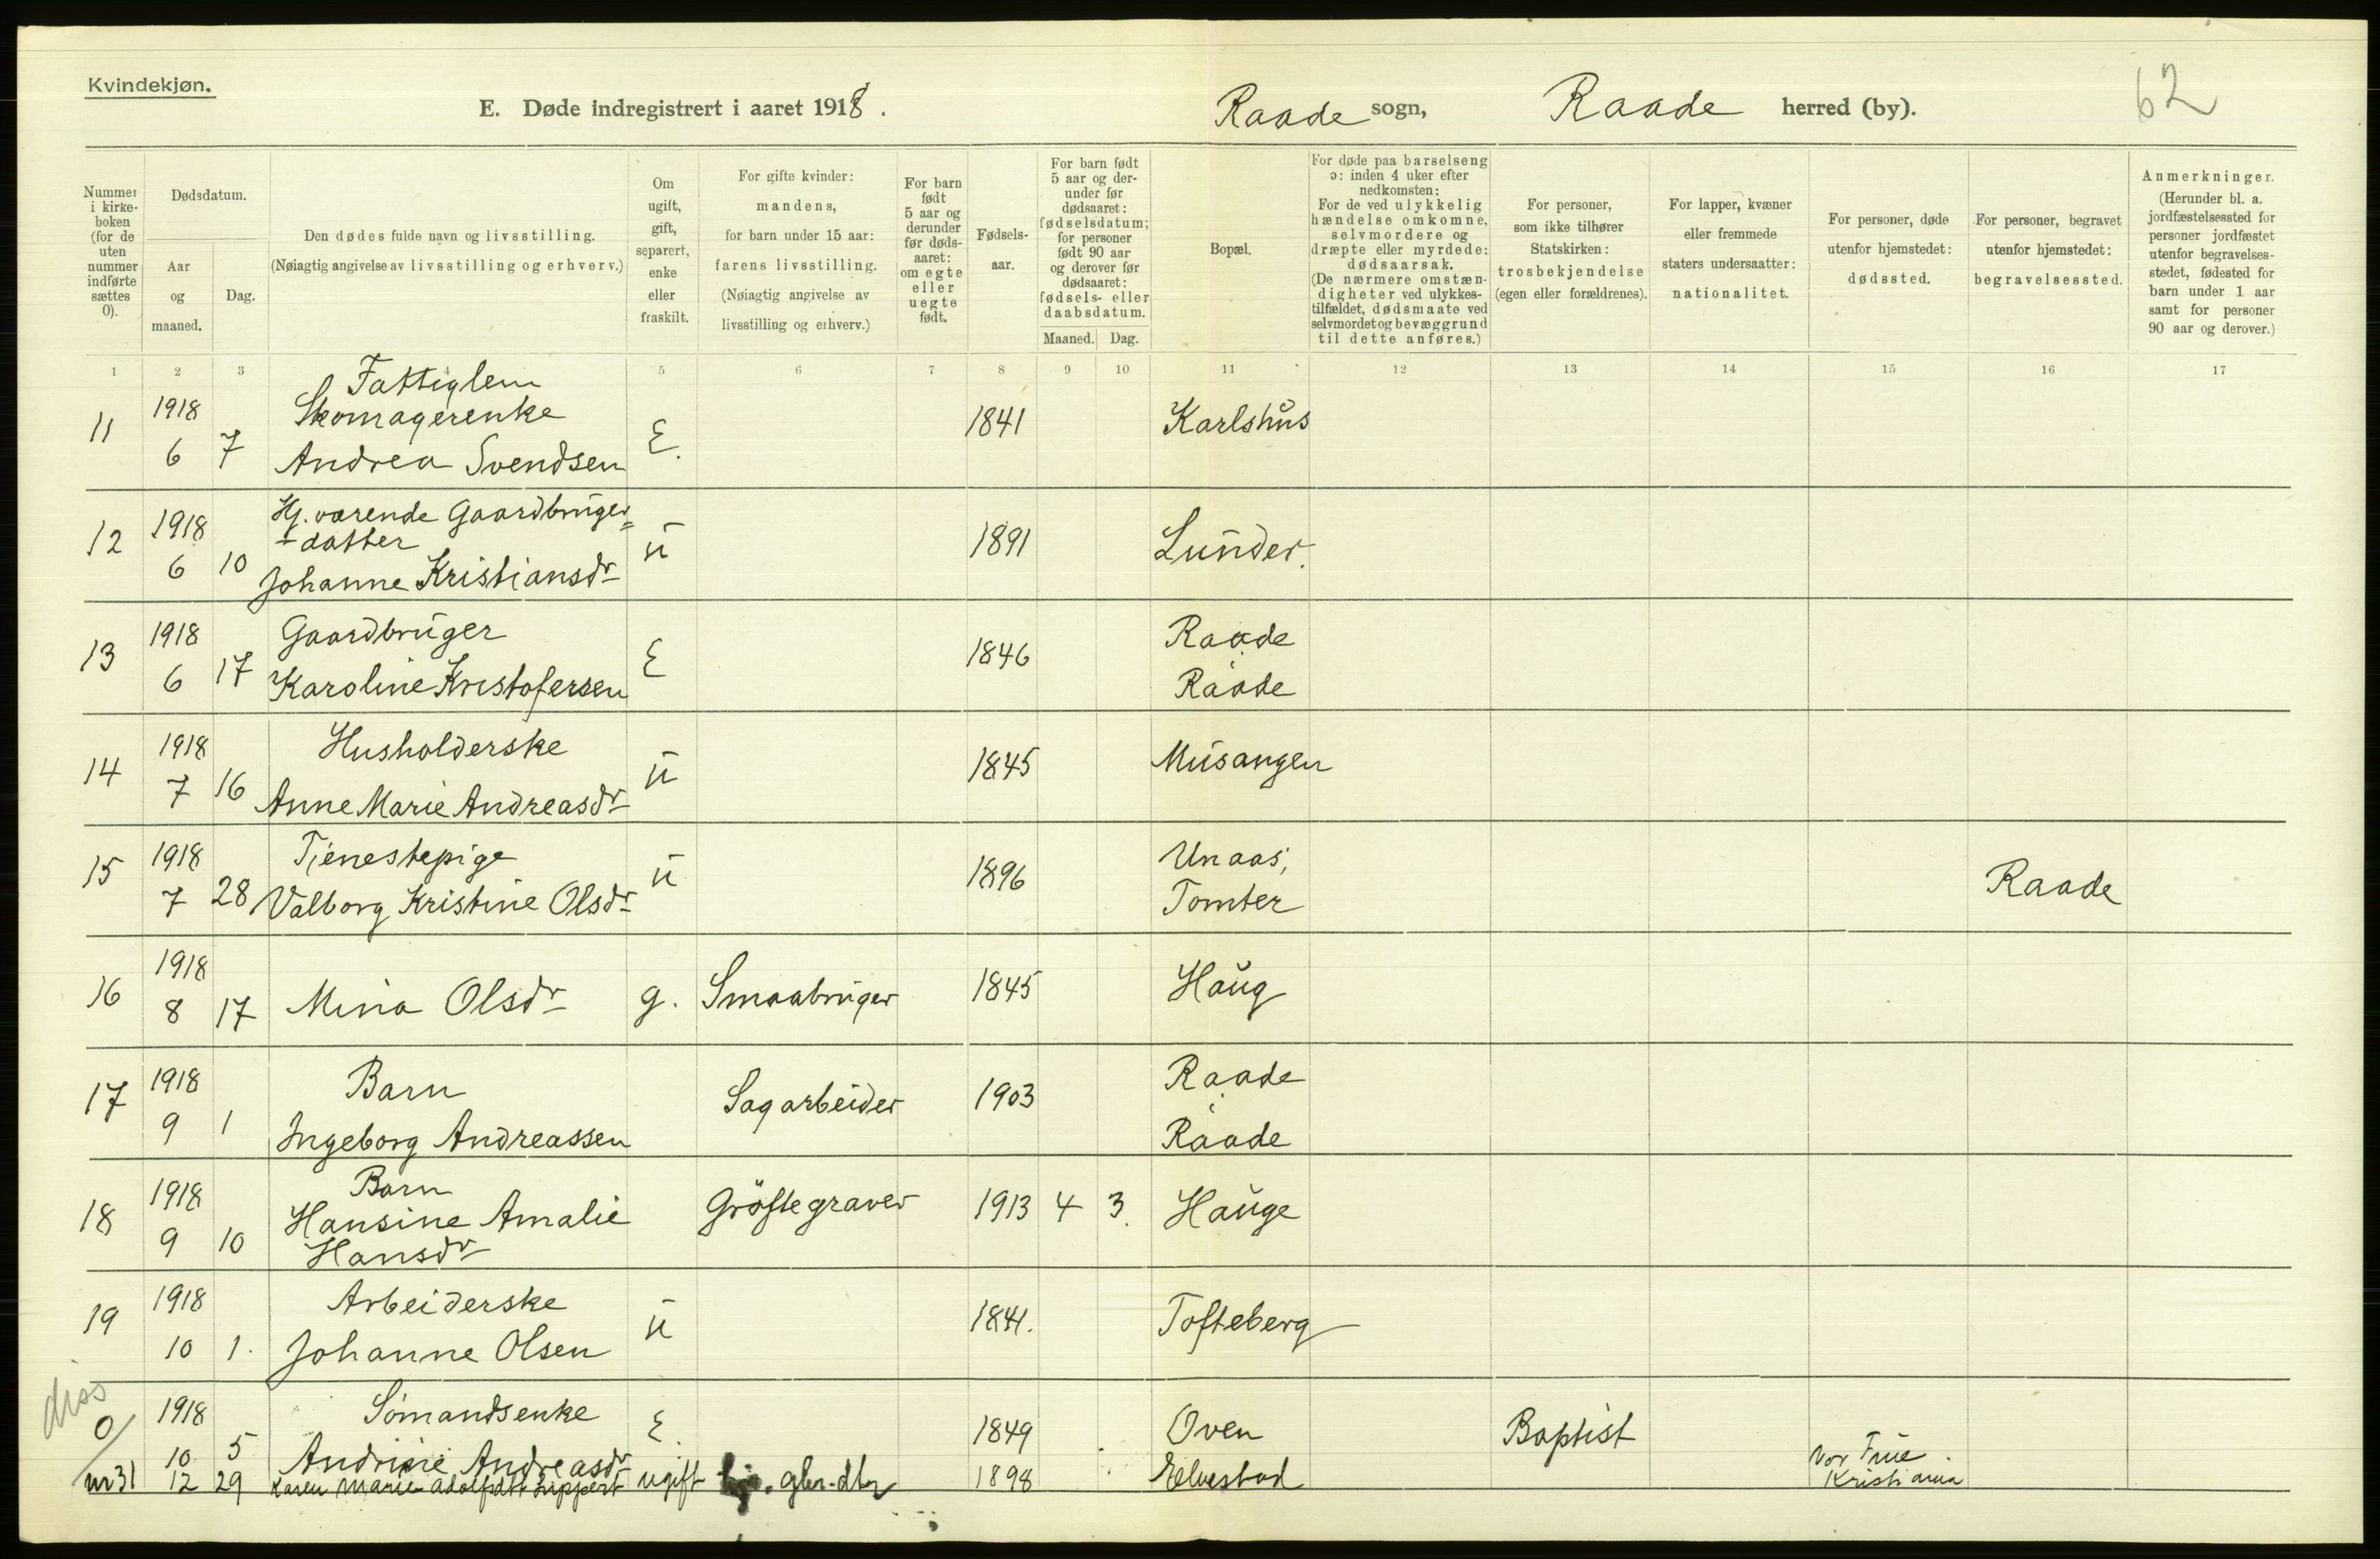 Kvindekjøn.
E. Døde indregistrert i aaret 1918.
Raade sogn, Raade herred (by).
62
Nummer
i kirke-
boken
(for de
uten
nummer
indførte
sættes
0).
Dødsdatum.
Aar
og
maaned.
Dag.
Den dødes fulde navn og livsstilling.
(Nøiagtig angivelse av livsstilling og erhverv.)
Om
ugift,
gift,
separert,
enke
eller
fraskilt.
For gifte kvinder:
mandens,
for barn under 15 aar:
farens livsstilling.
(Nøiagtig angivelse av
livsstilling og erhverv.)
For barn
født
5 aar og
derunder
før døds-
aaret:
om egte
eller
uegte
født.
Fødsels-
aar.
For barn født
5 aar og der-
under før
dødsaaret:
fødselsdatum;
for personer
født 90 aar
og derover før
dødsaaret:
fødsels- eller
daabsdatum.
Maaned. Dag.
Bopæl.
For døde paa barselseng
ɔ: inden 4 uker efter
nedkomsten:
For de ved ulykkelig
hændelse omkomne,
selvmordere og
dræpte eller myrdede:
dødsaarsak.
(De nærmere omstæn-
digheter ved ulykkes-
tilfældet, dødsmaate ved
selvmordet og bevæggrund
til dette anføres.)
For personer,
som ikke tilhører
Statskirken:
trosbekjendelse
(egen eller forældrenes).
For lapper, kvæner
eller fremmede
staters undersaatter:
nationalitet.
For personer, døde
utenfor hjemstedet:
dødssted.
For personer, begravet
utenfor hjemstedet:
begravelsessted.
Anmerkninger.
(Herunder bl. a.
jordfæstelsessted for
personer jordfæstet
utenfor begravelses-
stedet, fødested for
barn under 1 aar
samt for personer
90 aar og derover.)
1 2 3 4 5 6 7 8 9 10 11 12 13 14 15 16 17
Fattiglem
11 1918 Skomagerenke E. 1841 Karlshus
6 7 Andrea Svendsen
12 1918 Hj. værende Gaardbruger=
-datter u 1891 Lunder.
6 10 Johanne Kristiansdr
13 1918 Gaardbruger E 1846 Raade
6 17 Karoline Kristofersen Raade
14 1918 Husholderske u 1845 Musangen
7 16 Anne Marie Andreasdr
15 1918 Tjenestepige u 1896 Unaas, Raade
7 28 Valborg Kristine Olsdr Tomter
16 1918
8 17 Mina Olsdr g. Smaabruger 1845 Haug
17 1918 Barn Sagarbeider 1903 Raade
9 1 Ingeborg Andreassen Raade
18 1918 Barn
Hansine Amalie Grøftegraver 1913 4 3. Hauge
9 10 Hansdr
19 1918 Arbeiderske u 1841. Tofteberg
10 1. Johanne Olsen
diss
0/ 1918 Sømandsenke E. 1849 Oven Baptist
10 5 Andrine Andreasdr
nr 31 12 29 Karen Marie Adolfsdtr Lippert ugift gbr.-dtr 1898 Elvestad Vor Frue
Kristiania